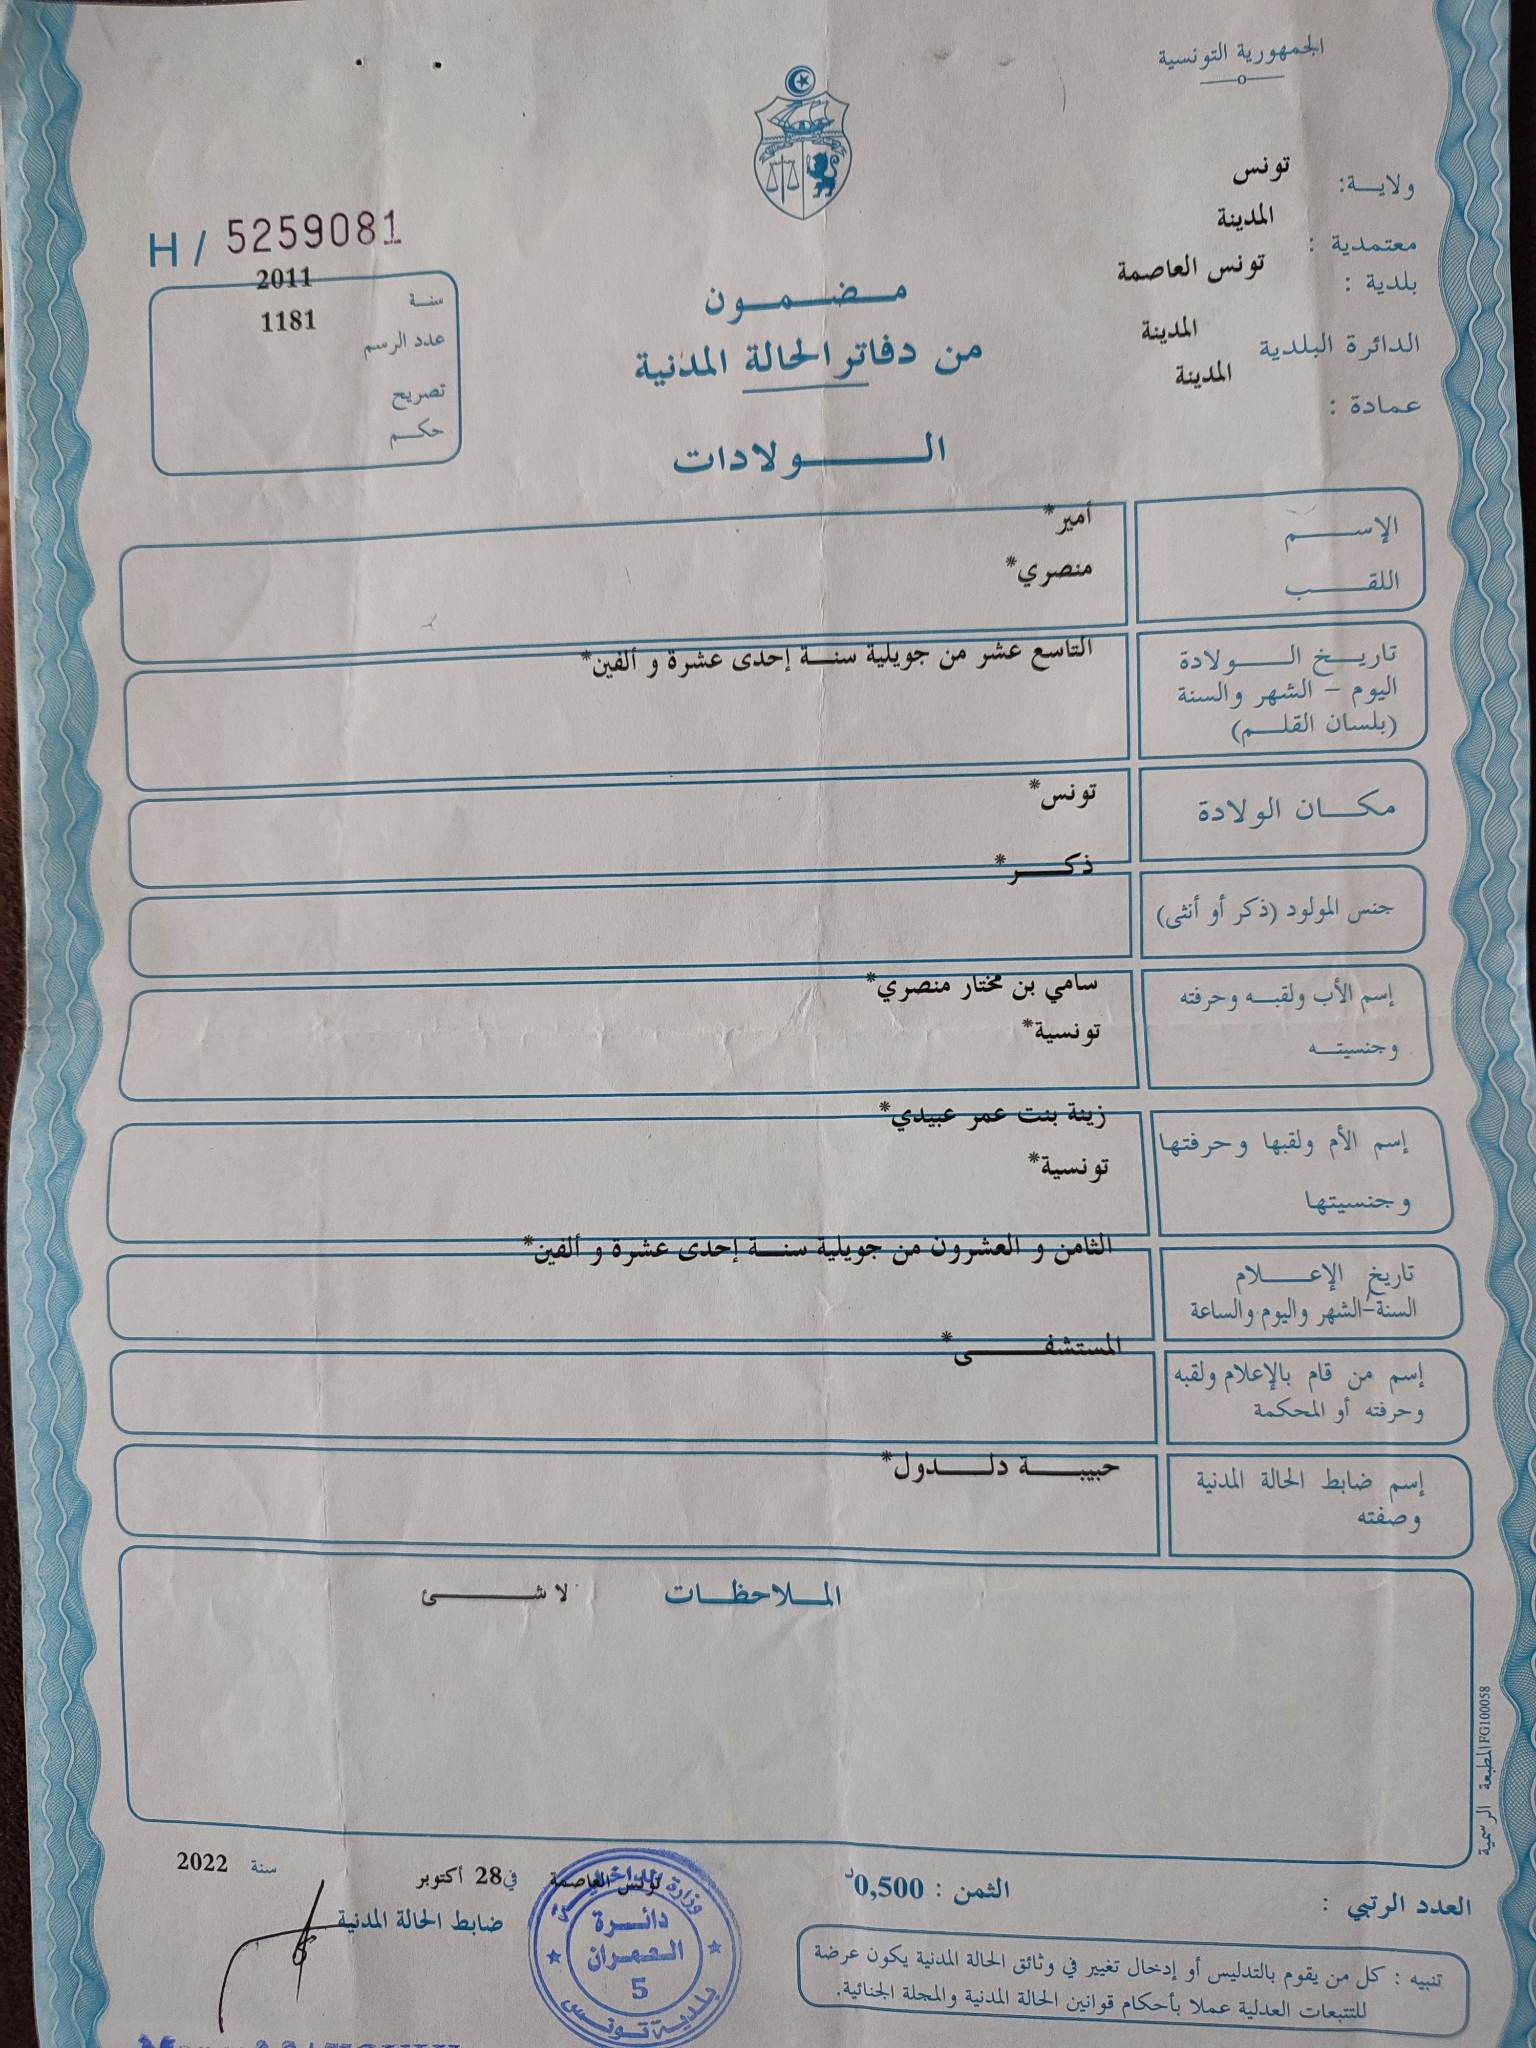 الجمهورية التونسية
ولاية: تونس
معتمدية : المدينة
بلدية : تونس العاصمة
الدائرة البلدية المدينة
عمادة : المدينة
H / 5259081
سنة 2011
عدد الرسم 1181
تصريح
حكم
مضمون
من دفاتر الحالة المدنية
الولادات
الإسم أمير*
اللقب منصري*
تاريخ الولادة التاسع عشر من جويلية سنة إحدى عشرة و ألفين*
اليوم - الشهر والسنة
(بلسان القلم)
مكان الولادة تونس*
جنس المولود (ذكر أو أنثى) ذكر*
إسم الأب ولقبه وحرفته سامي بن مختار منصري*
وجنسيته تونسية*
إسم الأم ولقبها وحرفتها زينة بنت عمر عبيدي*
وجنسيتها تونسية*
تاريخ الإعلام الثامن و العشرون من جويلية سنة إحدى عشرة و ألفين*
السنة-الشهر واليوم والساعة
إسم من قام بالإعلام ولقبه المستشفى*
وحرفته أو المحكمة
إسم ضابط الحالة المدنية حبيبة دلدول*
وصفته
الملاحظات لا شئ
المطبعة الرسمية FG100058
العدد الرتبي :
الثمن : 0,500 د
تونس العاصمة في 28 أكتوبر سنة 2022
ضابط الحالة المدنية
وزارة الداخلية
دائرة
العمران
5
بلدية تونس
تنبيه : كل من يقوم بالتدليس أو إدخال تغيير في وثائق الحالة المدنية يكون عرضة
للتتبعات العدلية عملا بأحكام قوانين الحالة المدنية والمجلة الجنائية.